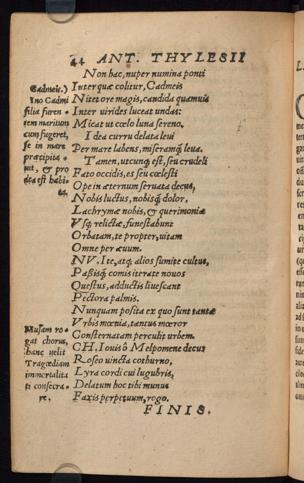 44 ANT. THYLESII
Non hac, nuper numina ponti
Inter quæ colitur, Cadmeis
Nitet ore magis, candida quamuis
Inter uirides luceat undas:
Micat ut cœlo luna sereno.
I dea curru delata leui
Per mare labens, miseranq́; leua.
Tamen, utcunq; est, seu crudeli
Fato occidis, es seu cœlesti
Ope in æternum seruata decus,
Nobis luctus, nobisq́; dolor,
Lachrymæ nobis, & querimoniæ
Vsq; relictæ, funestabunt
Orbatam, te propter, uitam
Omne per æuum.
NV. Ite, atq; alios sumite cultus,
Passisq́; comis iterate nouos
Questus, adductis liuescant
Pectora palmis.
Nunquam posita ex quo sunt tantæ
Vrbis mœnia, tantus mœror
Consternatam perculit urbem.
CH. Iouis ô Melpomene decus
Roseo uincta cothurno,
Lyra cordi cui lugubris,
Delatum hoc tibi munus
Faxis perpetuum, rogo.
FINIS.
Cadmeis.)
Ino Cadmi
filia furen-
tem maritum
cum fugeret,
se in mare
præcipita-
uit, & pro
dea est habi-
ta.
Musam ro-
gat chorus,
hanc uelit
Tragœdiam
immortalita
ti consecra-
re.